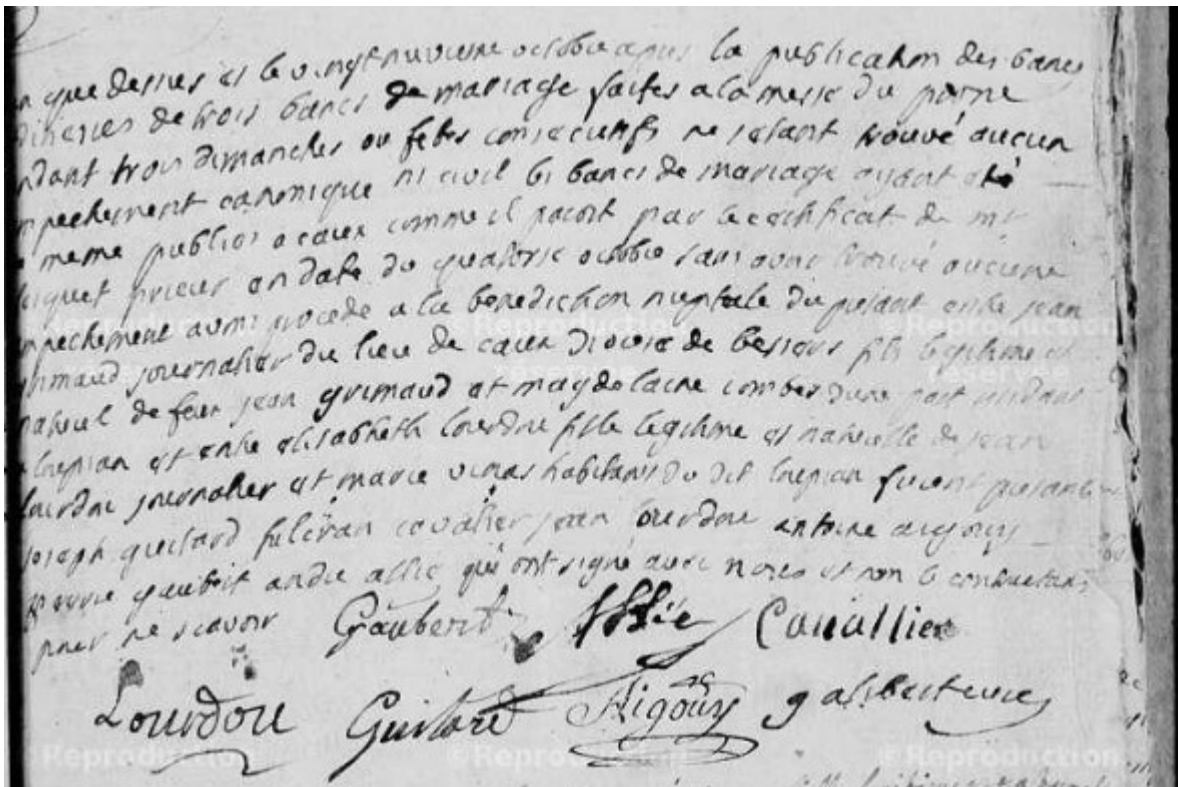 an que dessus et le vingt neuvieme octobre apres la publication des bancs
de trois bancs de mariage faites a la messe du prone
ndant trois dimanches ou fetes consecutifs ne setant trouvé aucun
mpechement canonique ni civil les bancs de mariage ayant eté
meme publies a caux comme il paroit par le certificat de mr
prieur en date du quatorse octobre sans avoir trouvé aucune
mpechement avons procede a la benediction nuptiale du presant entre jean
rimaud journalier du lieu de caux diocese de besiers fils legitime et
naturel de feu jean grimaud et magdelaine combes dune part
loupian et entre elisabheth lourdou fille legitime et naturelle de jean
lourdou journalier et marie vinas habitans du dit loupian furent presants
joseph guitard fulcran cavalier jean lourdou antoine aigouy
pierre gaubert andre allie qui ont signé avec nous et non le contractans
pour ne scavoir Gaubert Allié Cauallier
Lourdou Guitard Aigouy galibert cure